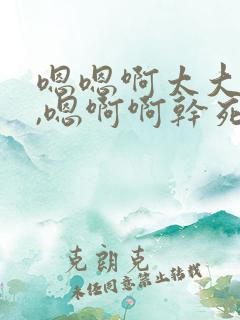 嗯嗯啊太大
,嗯啊啊幹死
克朗克
未经同意禁止转载